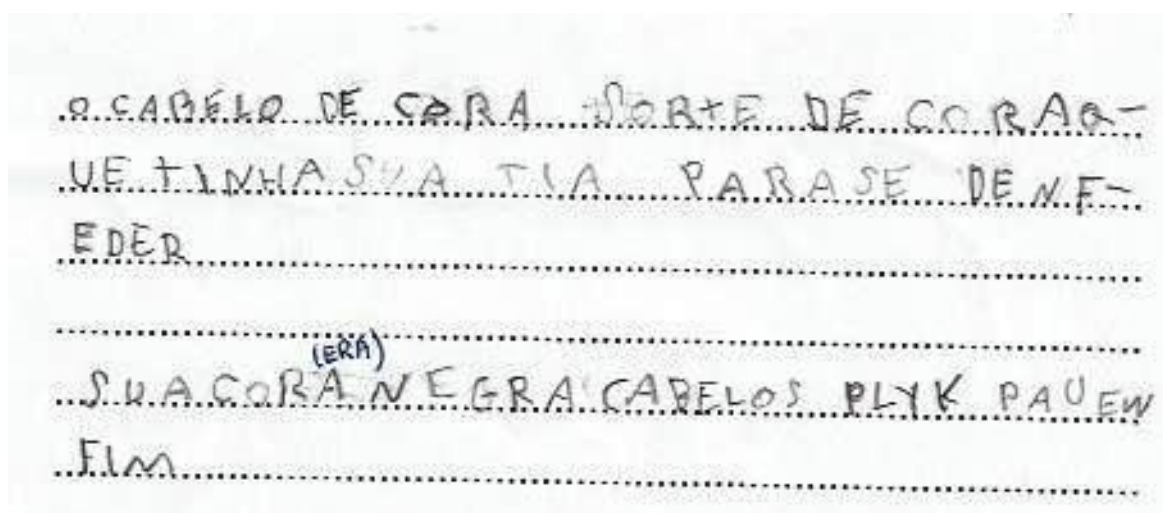 O CABELO DE CORA SORTE DE CORA Q-
UE TINHA SUA TIA PARA SE DENF-
EDER
(ERA)
SUA CORA NEGRA CABELOS PLYK PAU EN
FIM